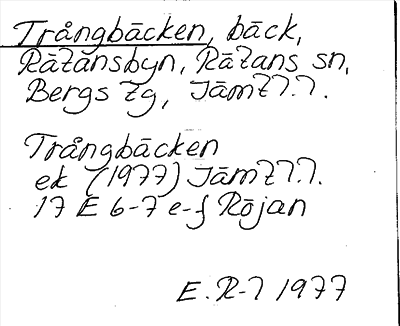 Trångbäcken, bäck,
Rätansbyn, Rätans sn,
Bergs tg, Jämtl.l.
Trångbäcken
ek (1977) Jämtl.l.
17 E 6-7 e-f Röjan
E. R-l 1977